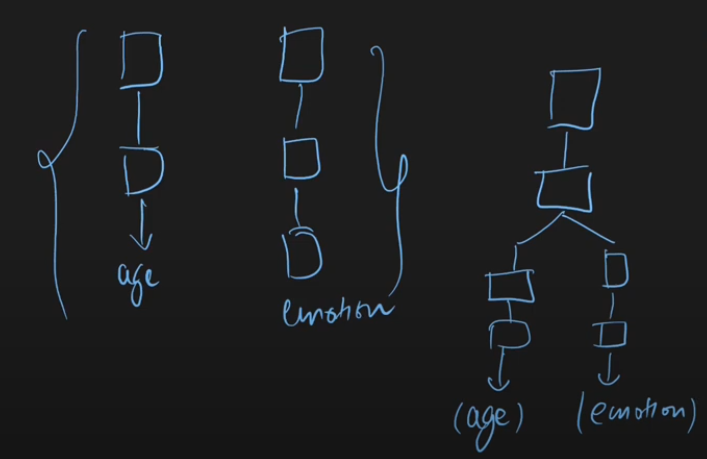 age
emotion
(age)
(emotion)